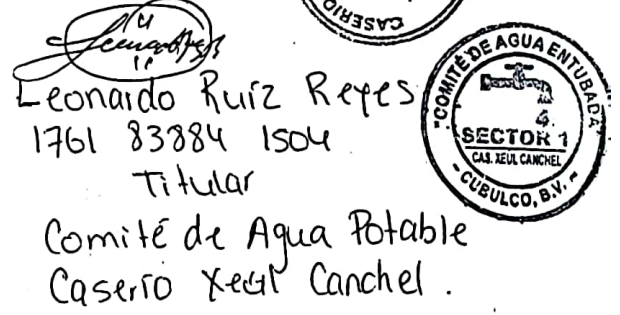 CASERIO
Leonardo Ruíz Reyes
1761 83884 1504
Titular
Comité de Agua Potable
Caserío Xeul Canchel.
"COMITÉ DE AGUA ENTUBADA"
SECTOR 1
CAS. XEUL CANCHEL
- CUBULCO, B.V. -